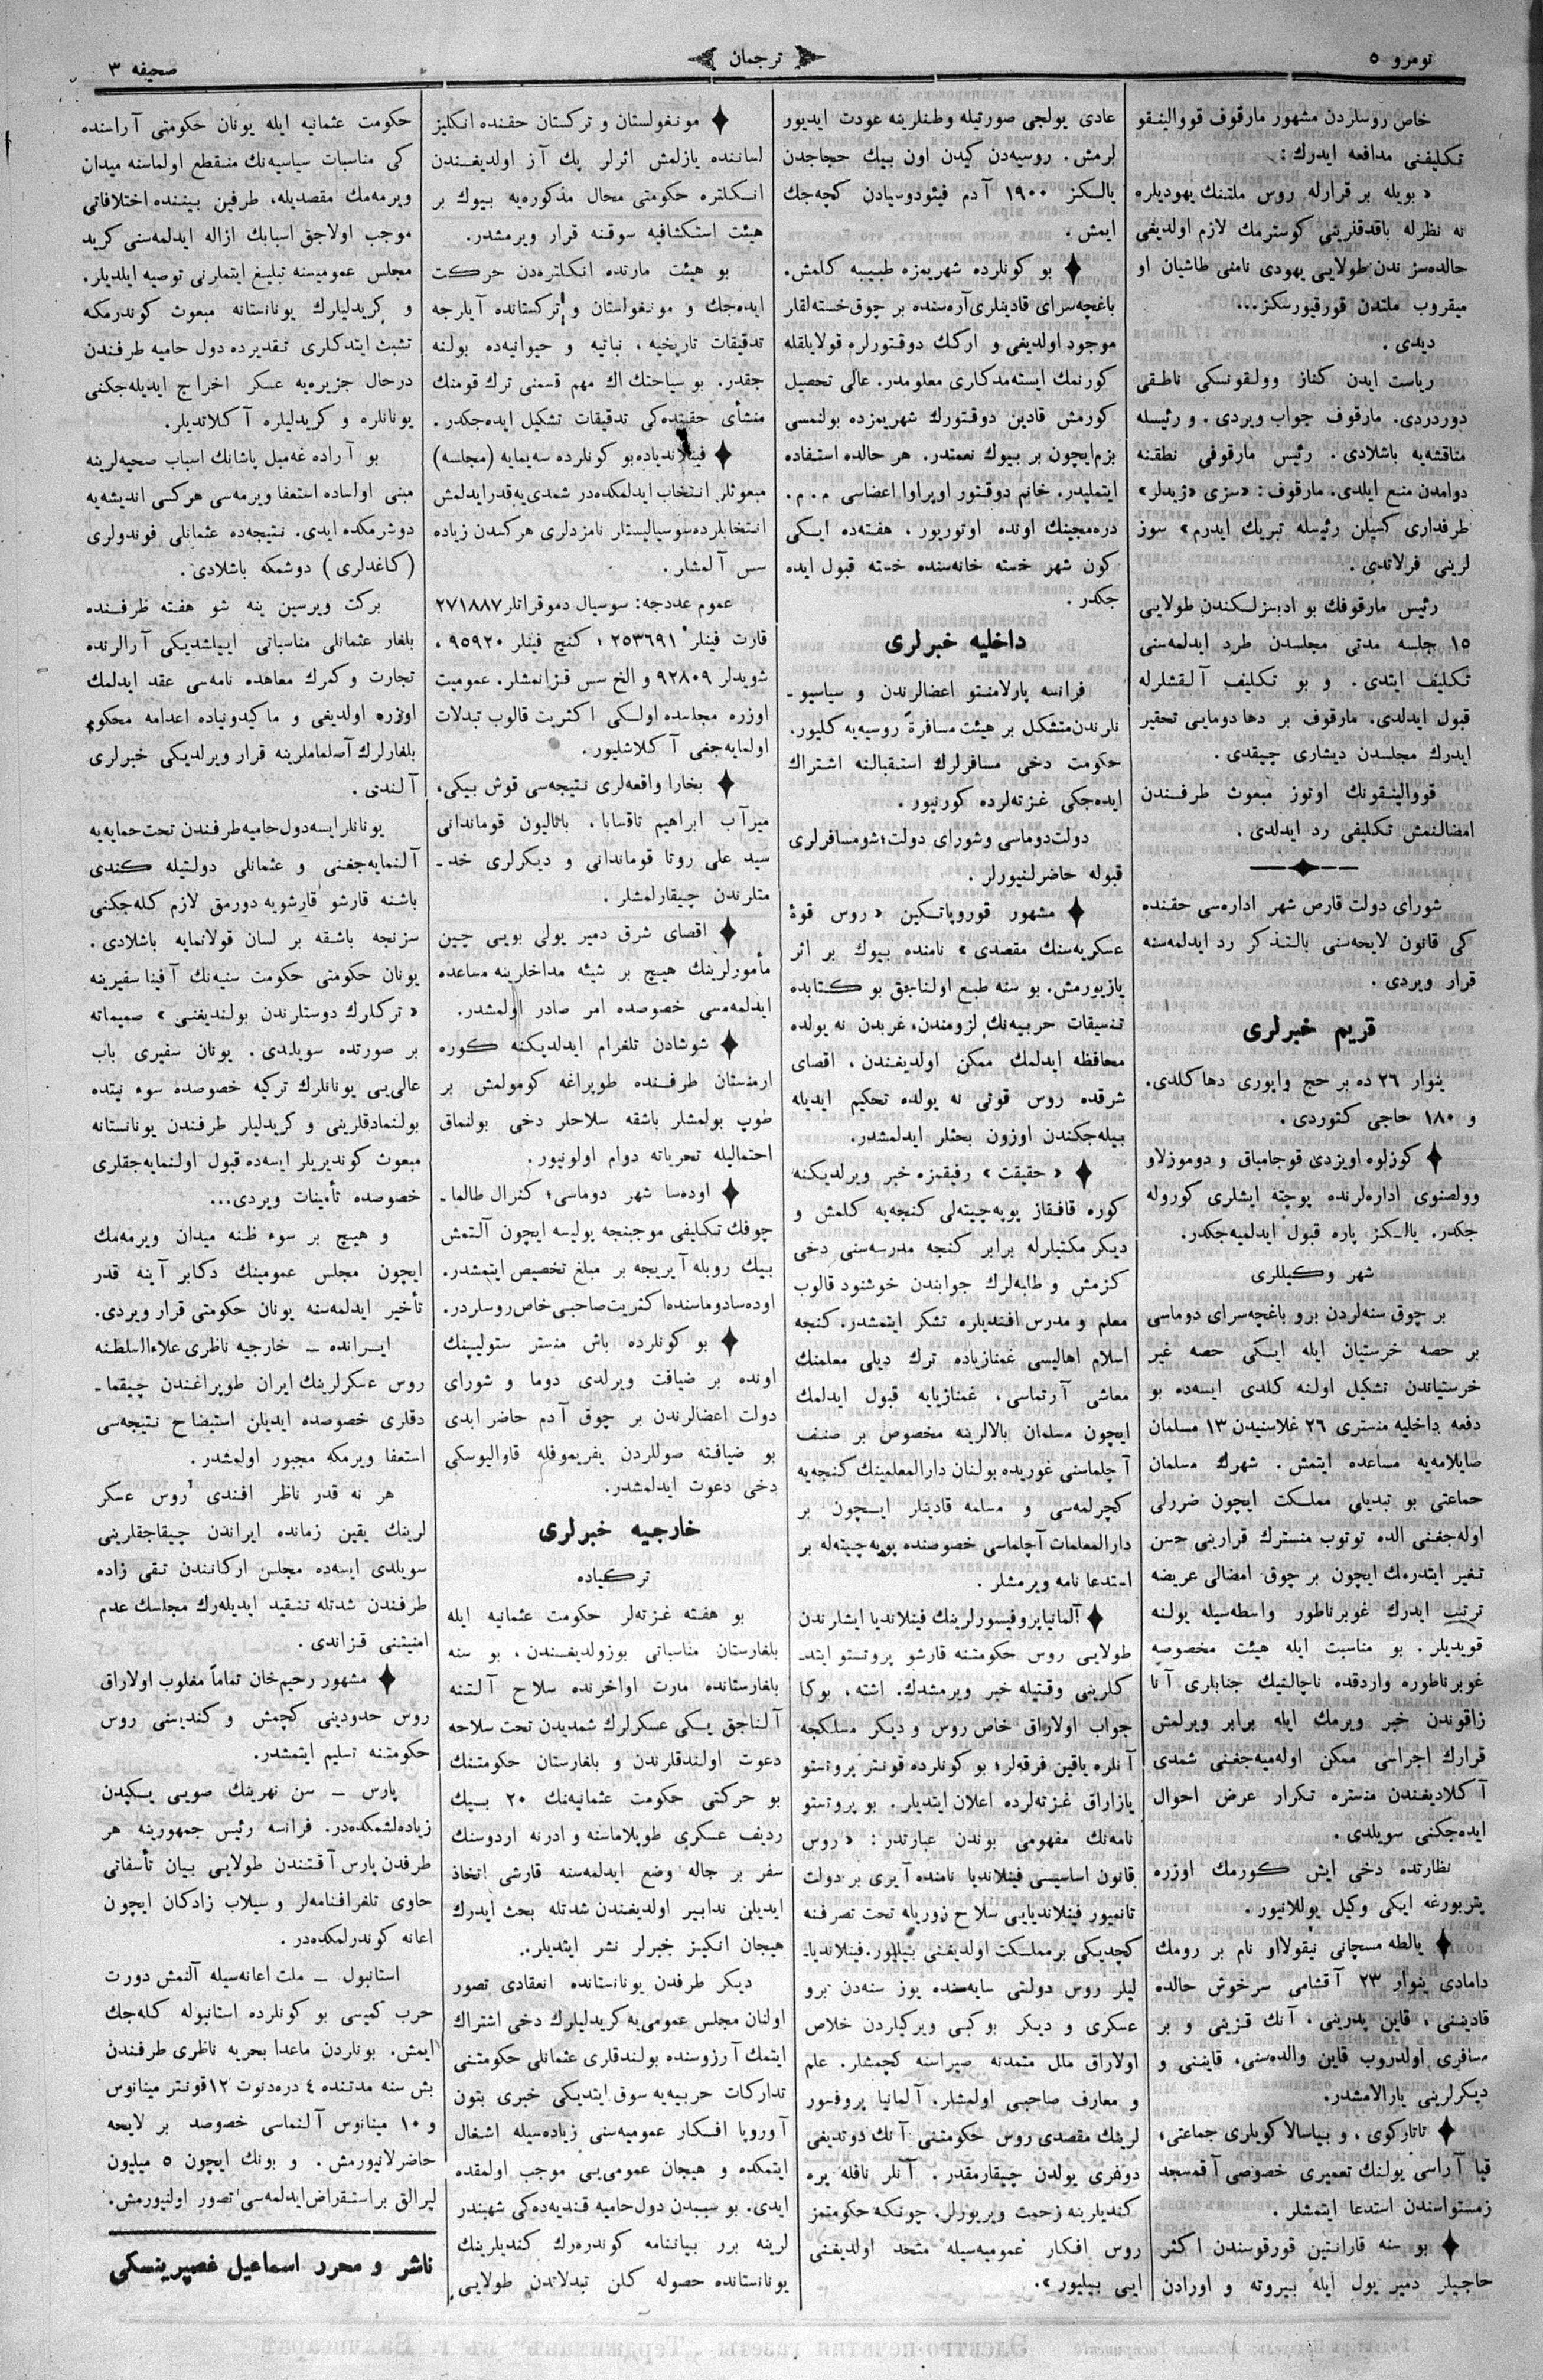 نومرو ٥
ترجمان
صحیفه ٣
خاص روسلردن مشهور مارقوف قووالینقو
تکلیفنی مدافعه ایدرك:
« بویله بر قرارله روس ملتنك یهودیلره
نه نظرله باقدقنرینی کوسترمك لازم اولدیغی
حالده‌سز ندن طولایی یهودی نامنی طاشیان او
میقروب ملتدن قورقیورسکز...
دیدی.
ریاست ایدن کناز وولقونسکی ناطقی
دوردردی. مارقوف جواب ویردی. و رئیسله
مناقشه‌یه باشلادی. رئیس مارقوفی نطقنه
دوامدن منع ایلدی. مارقوف: «سزی «ژیدلر»
طرفداری کسیلن رئیسله تبریك ایدرم» سوز
لرینی فرلاتدی.
رئیس مارقوفك بو ادبسزلکندن طولایی
١٥ جلسه مدتی مجلسدن طرد ایدلمه‌سنی
تکلیف ایتدی. و بو تکلیف آلقشلرله
قبول ایدلدی. مارقوف بر دها دومایی تحقیر
ایدرك مجلسدن دیشاری چیقدی.
قووالینقونك اوتوز مبعوث طرفندن
امضالنمش تکلیفی رد ایدلدی.
شورای دولت قارص شهر اداره‌سی حقنده
کی قانون لایحه‌سنی بالتذکر رد ایدلمه‌سنه
قرار ویردی.
قریم خبرلری
ینوار ٢٦ ده بر حج واپوری دها کلدی.
و ١٨٠ حاجی کتوردی.
کوزلوه اویزدی قوجامباق و دوموزلاو
وولصنوی اداره‌لرنده پوچته ایشلری کوروله
جکدر. یالکز پاره قبول ایدلمیه‌جکدر.
شهر وکیللری
بر چوق سنه‌لردن برو باغچه‌سرای دوماسی
بر حصه خرستیان ایله ایکی حصه غیر
خرستیاندن تشکیل اولنه کلدی ایسه‌ده بو
دفعه داخلیه منستری ٢٦ غلاسنیدن ١٣ مسلمان
صایلامه‌یه مساعده ایتمش. شهرك مسلمان
جماعتی بو تبدیلی مملکت ایچون ضررلی
اوله‌جغنی الده توتوب منسترك قرارینی حسن
تغیر ایتدرمك ایچون بر چوق امضالی عریضه
ترتیب ایدرك غوبرناطور واسطه‌سیله یولنه
قویدیلر. بو مناسبت ایله هیئت مخصوصه
غوبرناطوره واردقده ناچالنیك جنابلری آنا
زاقوندن خبر ویرمك ایله برابر ویرلمش
قرارك اجراسی ممکن اوله‌میه‌جغنی شمدی
آکلادیغندن منستره تکرار عرض احوال
ایده‌جکنی سویلدی.
نظارتده دخی ایش کورمك اوزره
پتربورغه ایکی وکیل یوللانیور.
یالطه مسچانی نیقولااو نام بر رومك
دامادی ینوار ٢٣ آقشامی سرخوش حالده
قادیننی، قاین پدرینی، آنك قزینی و بر
مسافری اولدروب قاین والده‌سنی، قایننی و
دیکرلرینی یارالامشدر.
تاتارکوی، و بیاسالا کویلری جماعتی،
قیا آراسی یولنك تعمیری خصوصی آقمسجد
زمستواسندن استدعا ایتمشلر.
بو سنه قارانتین قورقوسندن اکثر
حاجیلر دمیر یول ایله بیروته و اورادن
عادی یولجی صورتیله وطنلرینه عودت ایدیور
لرمش. روسیه‌دن کیدن اون بیك حجاجدن
یالکز ١٩٠٠ آدم فیئودوسیادن کچه‌جك
ایمش.
بو کونلرده شهریمزه طبیبه کلمش.
باغچه‌سرای قادینلری اره‌سنده بر چوق خسته‌لقلر
موجود اولدیغی و ارکك دوقتورلره قولایلقله
کورنمك ایسته‌مدکاری معلومدر. عالی تحصیل
کورمش قادین دوقتورك شهریمزده بولنمسی
بزم‌ایچون بر بیوك نعمتدر. هر حالده استفاده
ایتملیدر. خانم دوقتور اوپراوا اعضاسی م. م.
دره‌مجینك اونده اوتوریور، هفته‌ده ایکی
کون شهر خسته خانه‌سنده خسته قبول ایده
جکدر.
داخلیه خبرلری
فرانسه پارلامنتو اعضالرندن و سیاسیو-
نلرندن متشکل بر هیئت مسافرةً روسیه‌یه کلیور.
حکومت دخی مسافرلرك استقبالنه اشتراك
ایده‌جکی غزته‌لرده کورنیور.
دولت دوماسی و شورای دولت؛ شو مسافرلری
قبوله حاضرلنیورلر.
مشهور قوروپاتکین «روس قوهٔ
عسکریه‌سنك مقصدی» نامنده بیوك بر اثر
یازیورمش. بو سنه طبع اولناجق بو کتابده
تنسیقات حربیه‌نك لزومندن، غربدن نه یولده
محافظه ایدلمك ممکن اولدیغندن، اقصای
شرقده روس قوتی نه یولده تحکیم ایدیله
بیله‌جکندن اوزون بحثلر ایدلمشدر.
«حقیقت» رفیقمزه خبر ویرلدیکنه
کوره قافقاز پوپه‌چیته‌لی کنجه‌یه کلمش و
دیکر مکتبلرله برابر کنجه مدرسه‌سنی دخی
کزمش و طلبه‌لرك جوابندن خوشنود قالوب
معلم و مدرس افندیلره تشکر ایتمشدر. کنجه
اسلام اهالیسی غمنازیاده ترك دیلی معلمنك
معاشی آرتماسی، غمنازیایه قبول ایدلمك
ایچون مسلمان بالالرینه مخصوص بر صنف
آچلماسنی غوریده بولنان دارالمعلمینك کنجه‌یه
کچرلمه‌سی و مسلمه قادینلر ایچون بر
دارالمعلمات آچلماسی خصوصنده پوپه‌چیته‌له بر
استدعا نامه ویرمشلر.
آلمانیا پروفیسورلرینك فینلاندیا ایشلرندن
طولایی روس حکومتنه قارشو پروتستو ایتد-
کلرینی وقتیله خبر ویرمشدك. اشته، بوکا
جواب اولاراق خاص روس و دیکر مسلکجه
آنلره یاقین فرقه‌لر؛ بو کونلرده قونتر پروتستو
یازاراق غزته‌لرده اعلان ایتدیلر. بو پروتستو
نامه‌نك مفهومی بوندن عبارتدر: «روس
قانون اساسیسی فینلاندیا نامنده آیری بر دولت
تانمیور فینلاندیایی سلاح زوریله تحت تصرفنه
کچدیکی بر مملکت اولدیغنی بیلیور. فینلاندیا-
لیلر روس دولتی سایه‌سنده یوز سنه‌دن برو
عسکری و دیکر بو کبی ویرکیلردن خلاص
اولاراق ملل متمدنه صیراسنه کچمشلر. علم
و معارف صاحبی اولمشلر. آلمانیا پروفسور
لرینك مقصدی روس حکومتنی آنك دوتدیغی
دوغری یولدن چیقارمقدر. آنلر نافله یره
کندیلرینه زحمت ویریورلر. چونکه حکومتمز
روس افکار عمومیه‌سیله متحد اولدیغنی
ایی بیلیور».
مونغولستان و ترکستان حقنده انکلیز
لساننده یازلمش اثرلر پك آز اولدیغندن
انکلتره حکومتی محال مذکوره‌یه بیوك بر
هیئت استکشافیه سوقنه قرار ویرمشدر.
بو هیئت مارتده انکلتره‌دن حرکت
ایده‌جك و مونغولستان و ترکستانده آیلرجه
تدقیقات تاریخیه، نباتیه و حیوانیه‌ده بولنه
جقدر. بو سیاحتك اك مهم قسمنی ترك قومنك
منشأی حقنده‌کی تدقیقات تشکیل ایده‌جکدر.
فینلاندیاده بو کونلرده سه‌یمایه (مجلسه)
مبعوثلر انتخاب ایدلمکده‌در شمدی‌یه قدر ایدلمش
انتخابلرده سوسیالیستلر نامزدلری هرکسدن زیاده
سس آلمشلر.
عموم عددجه: سوسیال دموقراتلر ٢٧١٨٨٧
قارت فینلر ٢٥٣٦٩١، کنج فینلر ٩٥٩٢٠،
شویدلر ٩٢٨٠٩ و الخ سس قزانمشلر. عمومیت
اوزره مجلسده اولکی اکثریت قالوب تبدلات
اولمایه‌جغی آکلاشلیور.
بخارا واقعه‌لری نتیجه‌سی قوش بیکی،
میرآب ابراهیم تاقسابا، باتالیون قوماندانی
سید علی روتا قوماندانی و دیکرلری خد-
متلرندن چیقارلمشلر.
اقصای شرق دمیر یولی بویی چین
مأمورلرینك هیچ بر شیئه مداخلرینه مساعده
ایدلمه‌مسی خصوصده امر صادر اولمشدر.
شوشادن تلغرام ایدلدیکنه کوره
ارمنستان طرفنده طوپراغه کومولمش بر
طوپ بولمشلر باشقه سلاحلر دخی بولنماق
احتمالیله تحریاته دوام اولونیور.
اوده‌سا شهر دوماسی؛ کنرال طالما-
چوفك تکلیفی موجبنجه پولیسه ایچون آلتمش
بیك روبله آیریجه بر مبلغ تخصیص ایتمشدر.
اوده‌سا دوماسنده اکثریت صاحبی خاص روسلردر.
بو کونلرده باش منستر ستولیپینك
اونده بر ضیافت ویرلدی دوما و شورای
دولت اعضالرندن بر چوق آدم حاضر ایدی
بو ضیافته صوللردن یفریموفله قاوالیوسکی
دخی دعوت ایدلمشدر.
خارجیه خبرلری
ترکیاده
بو هفته غزته‌لر حکومت عثمانیه ایله
بلغارستان مناسباتی بوزولدیغندن، بو سنه
بلغارستانده مارت اواخرنده سلاح آلتنه
آلناجق یکی عسکرلرك شمدیدن تحت سلاحه
دعوت اولندقلرندن و بلغارستان حکومتنك
بو حرکتی حکومت عثمانیه‌نك ٢٠ بیك
ردیف عسکری طوپلاماسنه و ادرنه اردوسنك
سفر بر حاله وضع ایدلمه‌سنه قارشی اتخاذ
ایدیلن تدابیر اولدیغندن شدتله بحث ایدرك
هیجان انکیز خبرلر نشر ایتدیلر.
دیکر طرفدن یونانستانده انعقادی تصور
اولنان مجلس عمومی‌یه کریدلیلرك دخی اشتراك
ایتمك آرزوسنده بولندقلری عثمانلی حکومتنی
تدارکات حربیه‌یه سوق ایتدیکی خبری بتون
آوروپا افکار عمومیه‌سنی زیاده‌سیله اشغال
ایتمکده و هیجان عمومی‌یی موجب اولمقده
ایدی. بو سببدن دول حامیه قندیه‌ده‌کی شهبندر
لرینه برر بیاننامه کوندره‌رك کندیلرینك
یونانستانده حصوله کلن تبدلاتدن طولایی
حکومت عثمانیه ایله یونان حکومتی آراسنده
کی مناسبات سیاسیه‌نك منقطع اولماسنه میدان
ویرمه‌مك مقصدیله، طرفین بیننده اختلافاتی
موجب اولاجق اسبابك ازاله ایدلمه‌سنی کرید
مجلس عمومیسنه تبلیغ ایتمارنی توصیه ایلدیلر.
و کریدلیلرك یونانستانه مبعوث کوندرمکه
تشبث ایتدکلری تقدیرده دول حامیه طرفندن
درحال جزیره‌یه عسکر اخراج ایدیله‌جکنی
یونانلره و کریدلیلره آکلاتدیلر.
بو آراده غه‌میل پاشانك اسباب صحیه‌لرینه
مبنی اولسه‌ده استعفا ویرمه‌سی هرکسی اندیشه‌یه
دوشرمکده ایدی. نتیجه‌ده عثمانلی فوندولری
(کاغدلری) دوشمکه باشلادی.
برکت ویرسین ینه شو هفته ظرفنده
بلغار عثمانلی مناسباتی اییلشدیکی آرالرنده
تجارت و کمرك معاهده نامه‌سی عقد ایدلمك
اوزره اولدیغی و ماکیدونیاده اعدامه محکوم
بلغارلرك آصلماملرینه قرار ویرلدیکی خبرلری
آلندی.
یونانلر ایسه دول حامیه طرفندن تحت حمایه‌یه
آلنمایه‌جغنی و عثمانلی دولتیله کندی
باشنه قارشو قارشویه دورمق لازم کله‌جکنی
سزنجه باشقه بر لسان قولانمایه باشلادی.
یونان حکومتی حکومت سنیه‌نك آفینا سفیرینه
«ترکلرك دوستلرندن بولندیغنی» صمیمانه
بر صورتده سویلدی. یونان سفیری باب
عالی‌یی یونانلرك ترکیه خصوصده سوء نیتده
بولنمادقلرینی و کریدلیلر طرفندن یونانستانه
مبعوث کوندیریلر ایسه‌ده قبول اولنمایه‌جقلری
خصوصده تأمینات ویردی...
و هیچ بر سوء ظنه میدان ویرمه‌مك
ایچون مجلس عمومینك دکابر آینه قدر
تأخیر ایدلمه‌سنه یونان حکومتی قرار ویردی.
ایرانده — خارجیه ناظری علاءالسلطنه
روس عسکرلرینك ایران طوپراغندن چیقما-
دقلری خصوصده ایدیلن استیضاح نتیجه‌سی
استعفا ویرمکه مجبور اولمشدر.
هر نه قدر ناظر افندی روس عسکر
لرینك یقین زمانده ایراندن چیقاجقلرینی
سویلدی ایسه‌ده مجلس ارکانندن تقی زاده
طرفندن شدتله تنقید ایدیله‌رك مجلسك عدم
امنیتنی قزاندی.
مشهور رحیم‌خان تماماً مغلوب اولاراق
روس حدودینی کچمش و کندیسنی روس
حکومتنه تسلیم ایتمشدر.
پارس — سن نهرینك صویی یکیدن
زیاده‌لشمکده‌در. فرانسه رئیس جمهورینه هر
طرفدن پارس آقتندن طولایی بیان تأسفاتی
حاوی تلغرافنامه‌لر و سیلاب زادکان ایچون
اعانه کوندرلمکده‌در.
استانبول — ملت اعانه‌سیله آلنمش دورت
حرب کمیسی بو کونلرده استانبوله کله‌جك
ایمش. بونلردن ماعدا بحریه ناظری طرفندن
بش سنه مدتنده ٤ دره‌دنوت ١٢ قونتر مینانوس
و ١٠ مینانوس آلنماسی خصوصد بر لایحه
حاضرلانیورمش. و بونك ایچون ٥ میلیون
لیرالق بر استقراض ایدلمه‌سی تصور اولنیورمش.
ناشر و محرر اسماعیل غصپرینسکی